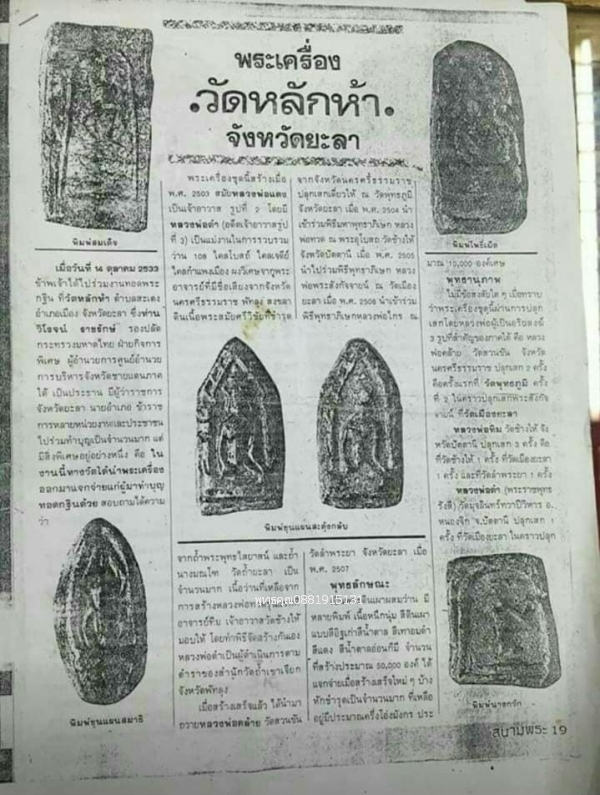 พระเครื่อง
.วัดหลักห้า.
จังหวัดยะลา
พิมพ์สมเด็จ
เมื่อวันที่ 14 ตุลาคม 2533
ข้าพเจ้าได้ไปร่วมงานทอดพระ
กฐิน ที่วัดหลักห้า ตำบลสะเตง
อำเภอเมือง จังหวัดยะลา ซึ่งท่าน
วิโรจน์ ราชรักษ์ รองปลัด
กระทรวงมหาดไทย ฝ่ายกิจการ
พิเศษ ผู้อำนวยการศูนย์อำนวย
การบริหารจังหวัดชายแดนภาค
ใต้ เป็นประธาน มีผู้ว่าราชการ
จังหวัดยะลา นายอำเภอ ข้าราช
การหลายหน่วยงานและประชาชน
ไปร่วมทำบุญเป็นจำนวนมาก แต่
มีสิ่งพิเศษอยู่อย่างหนึ่ง คือ ใน
งานนี้ทางวัดได้นำพระเครื่อง
ออกมาแจกจ่ายแก่ผู้มาทำบุญ
ทอดกฐินด้วย สอบถามได้ความ
ว่า
พิมพ์ขุนแผนสมาธิ
พระเครื่องชุดนี้สร้างเมื่อ
พ.ศ. 2503 สมัยหลวงพ่อแดง
เป็นเจ้าอาวาส รูปที่ 2 โดยมี
หลวงพ่อดำ (อดีตเจ้าอาวาสรูป
ที่ 3) เป็นแม่งานในการรวบรวม
ว่าน 108 ไคลโบสถ์ ไคลเจดีย์
ไคลกำแพงเมือง ผงวิเศษจากพระ
อาจารย์ที่มีชื่อเสียงจากจังหวัด
นครศรีธรรมราช พัทลุง สงขลา
ดินเนื้อพระสมัยศรีวิชัยที่ชำรุด
พิมพ์ขุนแผนสะดุ้งกลับ
จากถ้ำพระพุทธไสยาสน์ และถ้ำ
นางมณโฑ วัดถ้ำยะลา เป็น
จำนวนมาก เนื้อว่านที่เหลือจาก
การสร้างหลวงพ่อทวด
อาจารย์ทิม เจ้าอาวาสวัดช้างให้
มอบให้ โดยทำพิธีจัดสร้างกันเอง
หลวงพ่อดำเป็นผู้ดำเนินการตาม
ตำราของสำนักวัดถ้ำเขาเจียก
จังหวัดพัทลุง
เมื่อสร้างเสร็จแล้ว ได้นำมา
ถวายหลวงพ่อคล้าย วัดสวนขัน
จากจังหวัดนครศรีธรรมราช
ปลุกเสกเดี่ยวให้ ณ วัดพุทธภูมิ
จังหวัดยะลา เมื่อ พ.ศ. 2504 นำ
เข้าร่วมพิธีมหาพุทธาภิเษก หลวง
พ่อทวด ณ พระอุโบสถ วัดช้างให้
จังหวัดปัตตานี เมื่อ พ.ศ. 2505
นำไปร่วมพิธีพุทธาภิเษก หลวง
พ่อพระสังกัจจายน์ ณ วัดเมือง
ยะลา เมื่อ พ.ศ. 2506 นำเข้าร่วม
พิธีพุทธาภิเษกหลวงพ่อไกร ณ
วัดลำพระยา จังหวัดยะลา เมื่อ
พ.ศ. 2507
พุทธลักษณะ
ดินเผาผสมว่าน มี
หลายพิมพ์ เนื้อหนึกนุ่ม สีดินเผา
แบบสีอิฐเก่าสีน้ำตาล สีเทาอมดำ
สีแดง สีน้ำตาลอ่อนก็มี จำนวน
ที่สร้างประมาณ 50,000 องค์ ได้
แจกจ่ายเมื่อสร้างเสร็จใหม่ ๆ บ้าง
หักชำรุดเป็นจำนวนมาก ที่เหลือ
อยู่มีประมาณครึ่งโอ่งมังกร ประ
พุทธคุณ0881915131
พิมพ์โพธิ์เม็ด
มาณ 10,000 องค์เศษ
พุทธานุภาพ
ไม่มีข้อสงสัยใด ๆ เมื่อทราบ
ว่าพระเครื่องชุดนี้ผ่านการปลุก
เสกโดยหลวงพ่อผู้เป็นอริยสงฆ์
3 รูปที่สำคัญของภาคใต้ คือ หลวง
พ่อคล้าย วัดสวนขัน จังหวัด
นครศรีธรรมราช ปลุกเสก 2 ครั้ง
คือครั้งแรกที่ วัดพุทธภูมิ ครั้ง
ที่ 2 ในคราวปลุกเสกพระสังกัจ
จายน์ ที่วัดเมืองยะลา
หลวงพ่อทิม วัดช้างให้ จัง
หวัดปัตตานี ปลุกเสก 3 ครั้ง คือ
ที่วัดช้างให้ 1 ครั้ง ที่วัดเมืองยะลา
1 ครั้ง และที่วัดลำพระยา 1 ครั้ง
หลวงพ่อดำ (พระราชพุทธ
รังสี) วัดมุจลินทวาปีวิหาร อ.
หนองจิก จ.ปัตตานี ปลุกเสก 1
ครั้ง ที่วัดเมืองยะลา ในคราวปลุก
พิมพ์นาคปรก
สนามพระ 19